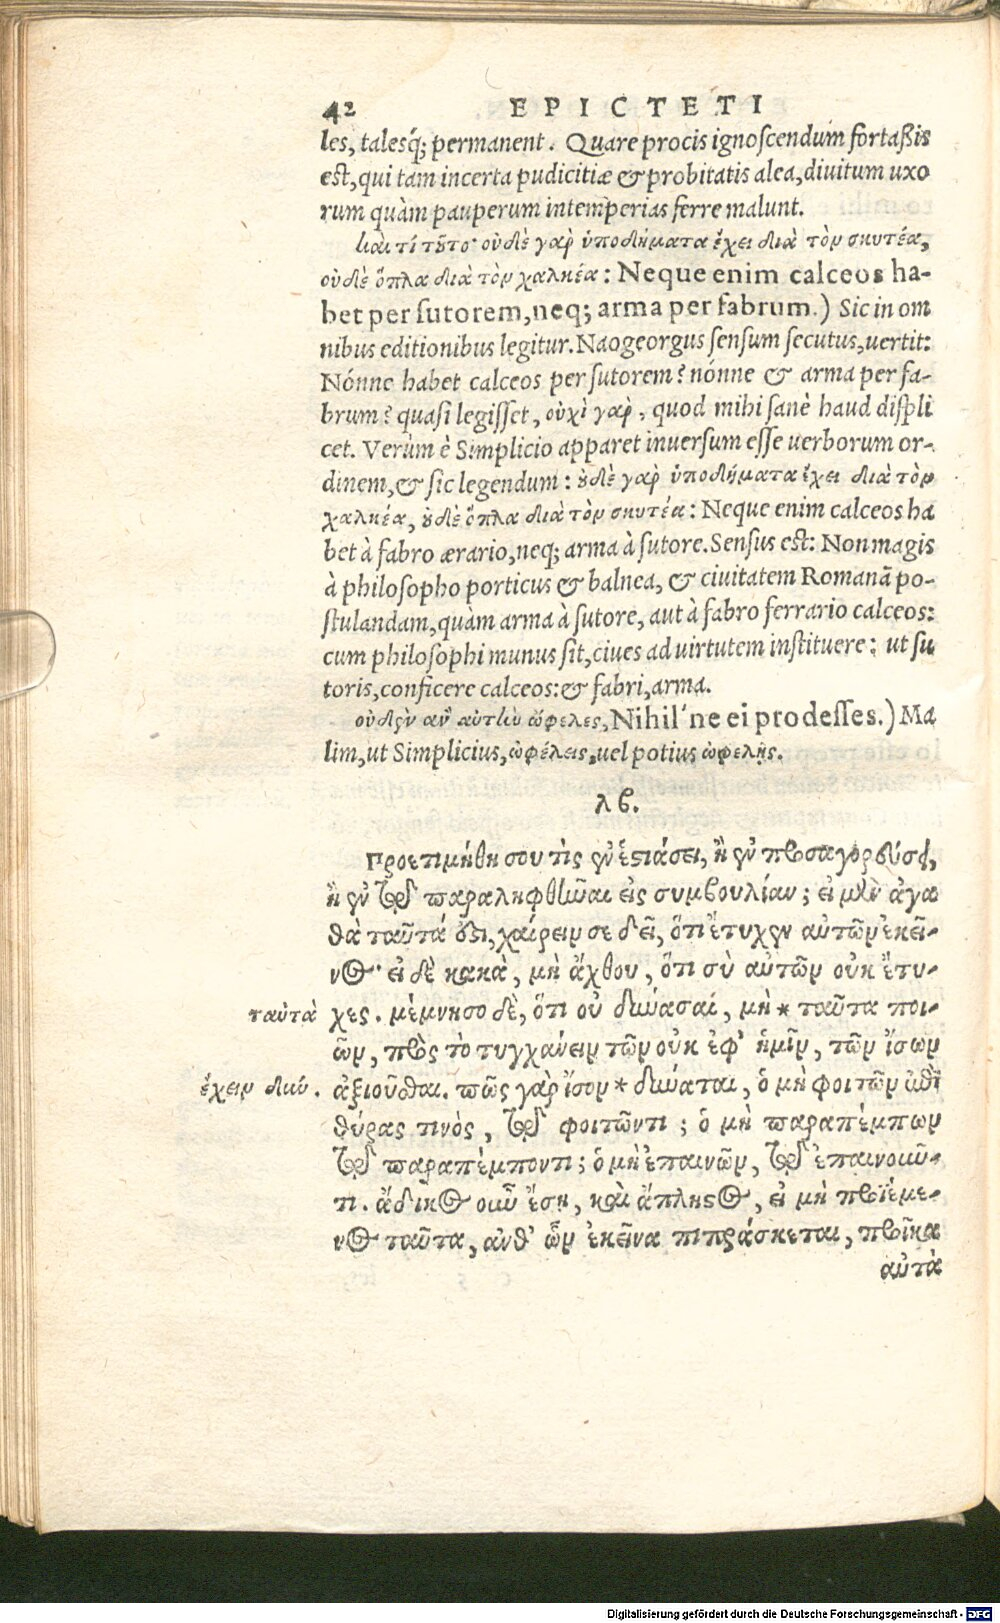 42 EPICTETI
les, talesq́; permanent. Quare procis ignoscendum fortaßis
est, qui tam incerta pudicitiæ & probitatis alea, diuitum uxo
rum quàm pauperum intemperias ferre malunt.
καὶ τί τοῦτο· οὐδὲ γὰρ ὑποδήματα ἔχει διὰ τὸν σκυτέα,
οὐδὲ ὅπλα διὰ τὸν χαλκέα: Neque enim calceos ha-
bet per sutorem, neq; arma per fabrum.) Sic in om
nibus editionibus legitur. Naogeorgus sensum secutus, uertit:
Nónne habet calceos per sutorem? nónne & arma per fa-
brum? quasi legisset, οὐχὶ γὰρ, quod mihi sanè haud displi
cet. Verùm è Simplicio apparet inuersum esse uerborum or-
dinem, & sic legendum: οὐδὲ γὰρ ὑποδήματα ἔχει διὰ τὸν
χαλκέα, οὐδὲ ὅπλα διὰ τὸν σκυτέα: Neque enim calceos ha
bet à fabro ærario, neq; arma à sutore. Sensus est: Non magis
à philosopho porticus & balnea, & ciuitatem Romanā po-
stulandam, quàm arma à sutore, aut à fabro ferrario calceos:
cum philosophi munus sit, ciues ad uirtutem instituere: ut su
toris, conficere calceos: & fabri, arma.
οὐδὲν ἂν αὐτὴν ὤφελες, Nihil'ne ei prodesses.) Ma
lim, ut Simplicius, ὠφέλεις, uel potius ὠφελῇς.
λβ.
Προετιμήθη σου τὶς ἐν ἑστιάσει, ἢ ἐν προσαγορεύσει,
ἢ ἐν τῷ παραληφθῆναι εἰς συμβουλίαν; εἰ μὲν ἀγα
θὰ ταῦτά ἐστι, χαίρειν σε δεῖ, ὅτι ἔτυχεν αὐτῶν ἐκεῖ-
νος· εἰ δὲ κακὰ, μὴ ἄχθου, ὅτι σὺ αὐτῶν οὐκ ἔτυ-
ταὐτὰ χες. μέμνησο δὲ, ὅτι οὐ δύνασαι, μὴ * ταῦτα ποι-
ῶν, πρὸς τὸ τυγχάνειν τῶν οὐκ ἐφ' ἡμῖν, τῶν ἴσων
ἔχειν δύν. ἀξιοῦσθαι. πῶς γὰρ ἴσον * δύναται, ὁ μὴ φοιτῶν ἐπὶ
θύρας τινὸς, τῷ φοιτῶντι; ὁ μὴ παραπέμπων
τῷ παραπέμποντι; ὁ μὴ ἐπαινῶν, τῷ ἐπαινοῦν-
τι. ἄδικος οὖν ἔσῃ, καὶ ἄπληστος, εἰ μὴ προϊέμε-
νος ταῦτα, ἀνθ' ὧν ἐκεῖνα πιπράσκεται, προῖκα
αὐτὰ
Digitalisierung gefördert durch die Deutsche Forschungsgemeinschaft - DFG